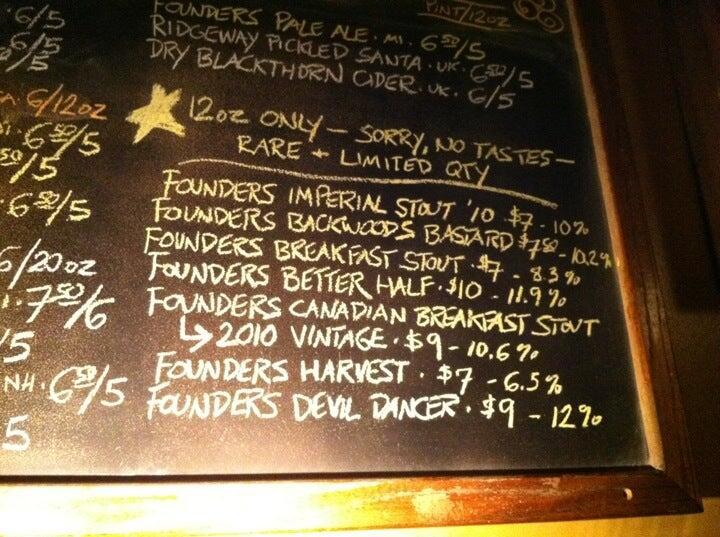 6/5
6 50/5
/5
6/12oz
6 50/5
50/5
6 50/5
6/20oz
7 50/6
/5
NH · 6 50/5
5
PINT/12OZ
FOUNDERS PALE ALE · MI · 6 50/5
RIDGEWAY PICKLED SANTA · UK · 6 50/5
DRY BLACKTHORN CIDER · UK · 6/5
12oz ONLY — SORRY, NO TASTES —
RARE + LIMITED QTY
FOUNDERS IMPERIAL STOUT '10 · $7 - 10%
FOUNDERS BACKWOODS BASTARD $7 50 - 10.2%
FOUNDERS BREAKFAST STOUT · $7 - 8.3%
FOUNDERS BETTER HALF · $10 - 11.9%
FOUNDERS CANADIAN BREAKFAST STOUT
↳ 2010 VINTAGE · $9 - 10.6%
FOUNDERS HARVEST · $7 - 6.5%
FOUNDERS DEVIL DANCER · $9 - 12%